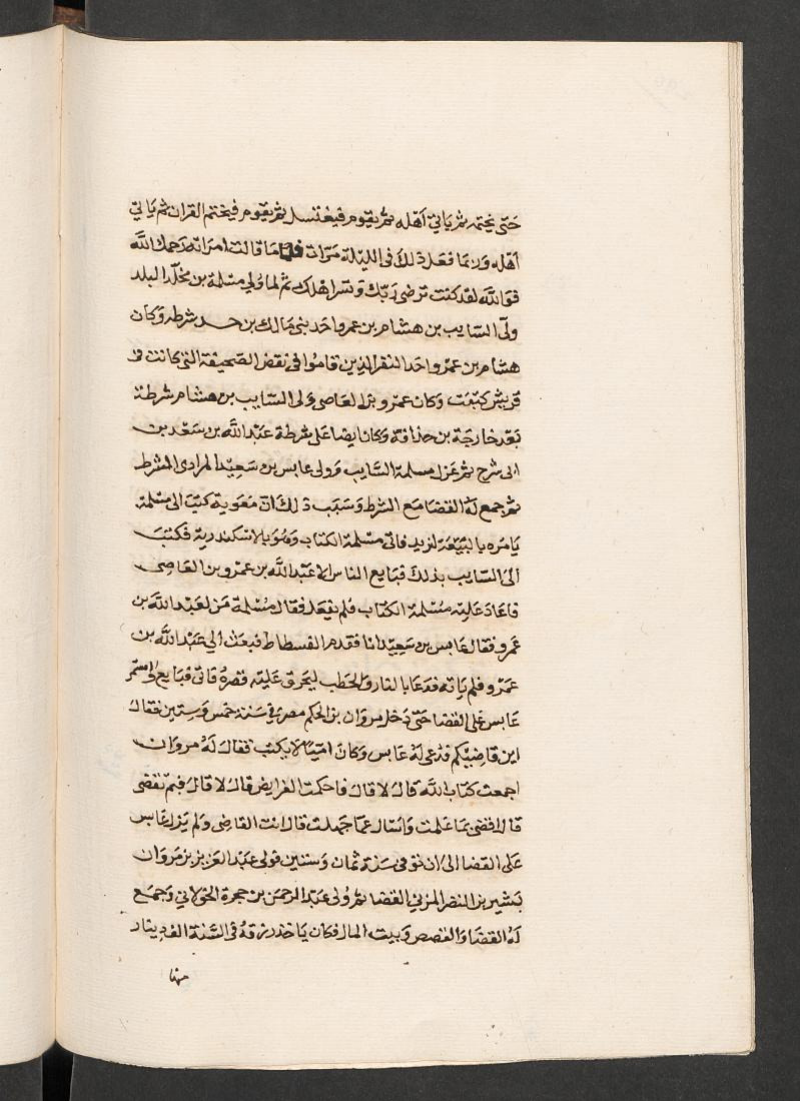 حتى يختمه ثم ياتي اهله ثم يقوم فيغتسل ثم يقوم فيختم القران ثم ياتي
اهله وربما فعل ذلك في الليلة مرات فلما مات قالت امراته رحمك الله
فوالله لقد كنت ترضى ربك وتسر اهلك ثم لما ولي مسلمة بن مخلد البلد
ولى السايب بن هشام بن عمرو احد بني مالك بن حسد شرطه وكان
هشام بن عمرو احد النفر الذين قاموا في نقض الصحيفة التي كانت في
قريش كتبت وكان عمرو بن العاصى ولى السايب بن هشام شرطة
بعد خارجة بن حذافة وكان ايضا على شرطة عبد الله بن سعد بن
ابى شرح ثم عزل مسلمة السايب وولى عابس بن سعيد المرادى الشرط
ثم جمع له القضا مع الشرط وسبب ذلك ان معوية كتب الى مسلمة
يامره بالبيعة لزيد فاتى مسلمة الكتاب وهو بالاسكندرية فكتب
الى السايب بذلك فبايع الناس الا عبد الله بن عمرو بن العاصى
فاعاد عليه مسلمة الكتاب فلم يفعل فقال مسلمة من لعبد الله بن
عمرو فقال عابس بن سعيد انا فقدم الفسطاط فبعث الى عبد الله بن
عمرو فلم ياته فدعا بالنار والحطب ليحرق عليه قصره فاتى فبايع واستمر
عابس على القضا حتى دخل مروان بن الحكم مصر في سنة خمس وستين فقال
اين قاضيكم فدعى له عابس وكان اميا لا يكتب فقال له مروان
اجمعت كتاب الله قال لا قال فاحكمت الفرايض قال لا قال فبم تقضى
قال اقضى بما علمت واسال عما جهلت قال انت القاضى ولم يزل عابس
على القضا الى ان توفى سنة ثمان وستين فولى عبد العزيز بن مروان
بشير بن النضر المزني القضا ثم ولى عبد الرحمن بن حجرة الخولاني وجمع
له القضا والقصص وبيت المال فكان ياخذ رزقه في السنة الف دينار
منها